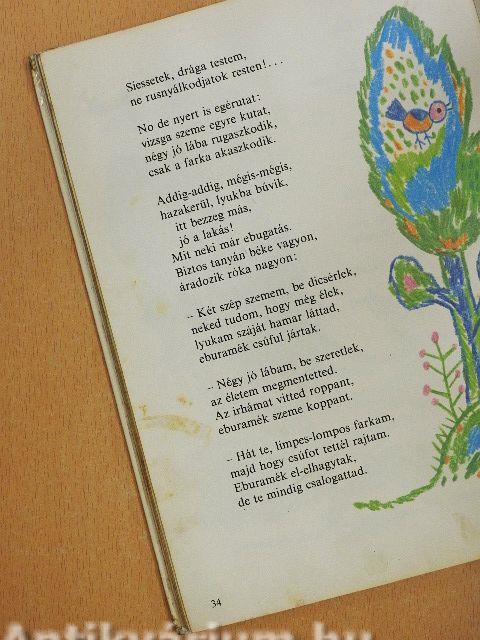 Siessetek, drága testem,
ne rusnyálkodjatok resten!...
No de nyert is egérutat:
vizsga szeme egyre kutat,
négy jó lába rugaszkodik,
csak a farka akaszkodik.
Addig-addig, mégis-mégis,
hazakerül, lyukba búvik,
itt bezzeg más,
jó a lakás!
Mit neki már ebugatás.
Biztos tanyán béke vagyon,
áradozik róka nagyon:
– Két szép szemem, be dicsérlek,
neked tudom, hogy még élek,
lyukam száját hamar láttad,
eburamék csúful jártak.
– Négy jó lábam, be szeretlek,
az életem megmentetted.
Az irhámat vitted roppant,
eburamék szeme koppant.
– Hát te, limpes-lompos farkam,
majd hogy csúfot tettél rajtam.
Eburamék el-elhagytak,
de te mindig csalogattad.
34
Antikvárium.hu